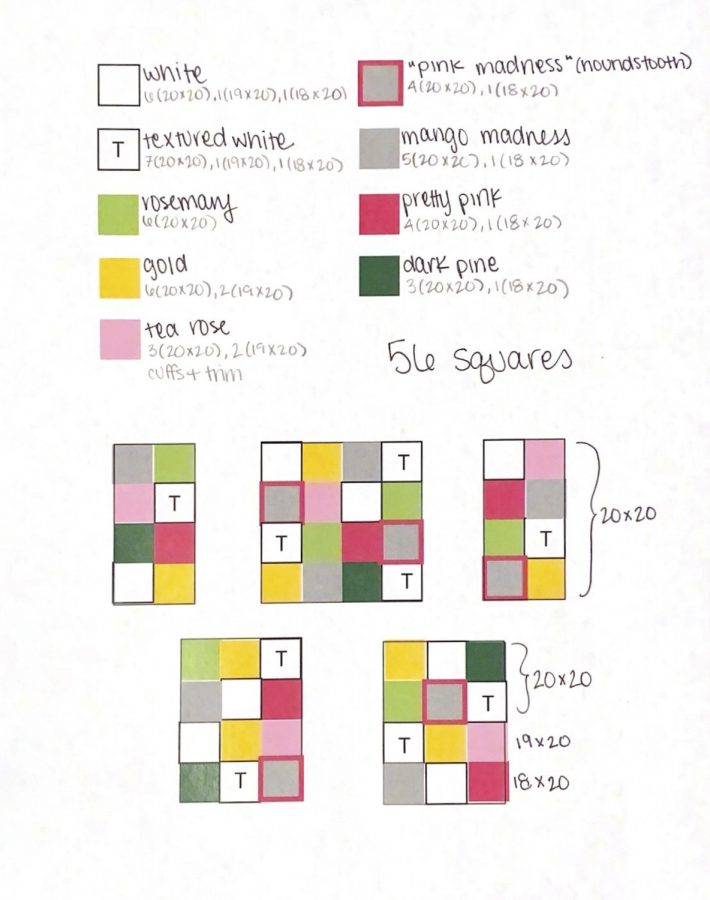 white
6(20x20), 1(19x20), 1(18x20)
T
textured white
7(20x20), 1(19x20), 1(18x20)
rosemary
6(20x20)
gold
6(20x20), 2(19x20)
tea rose
3(20x20), 2(19x20)
cuffs + trim
"pink madness" (houndstooth)
4(20x20), 1(18x20)
mango madness
5(20x20), 1(18x20)
pretty pink
4(20x20), 1(18x20)
dark pine
3(20x20), 1(18x20)
56 squares
T
T
T
T
T
T
20x20
T
T
T
T
20x20
19x20
18x20